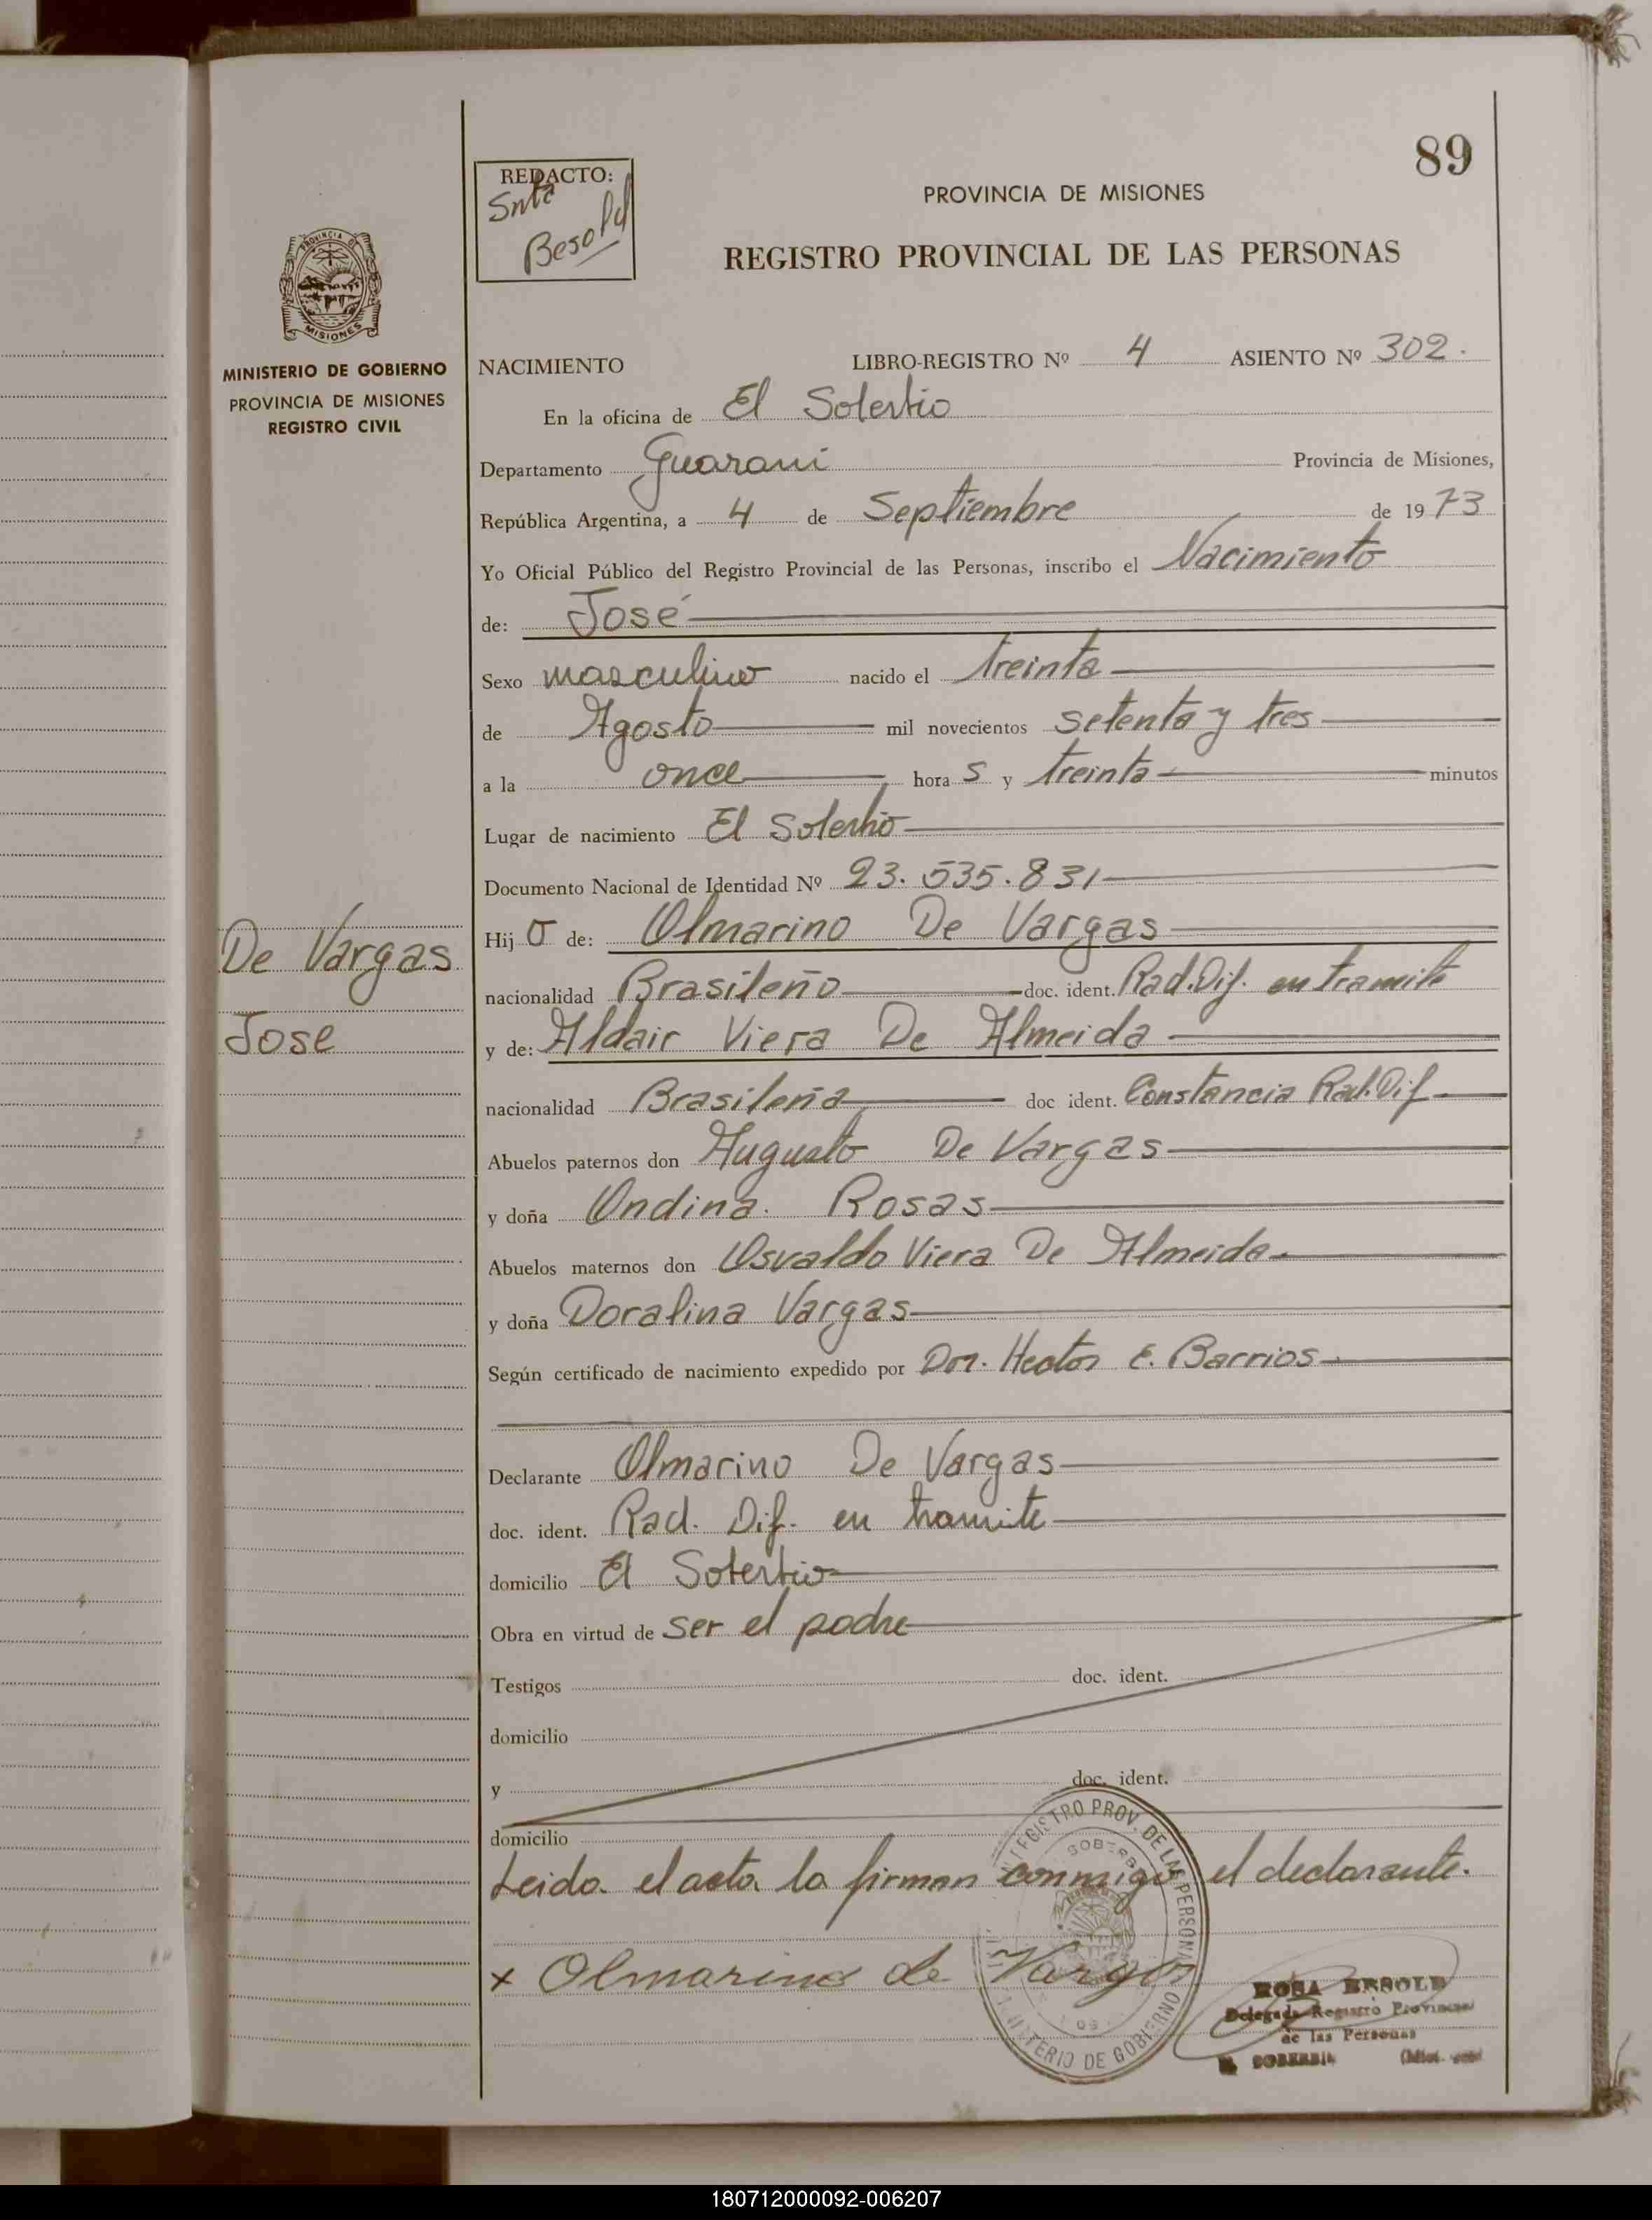 89
REDACTO:
Snta
Besold
PROVINCIA DE MISIONES
REGISTRO PROVINCIAL DE LAS PERSONAS
PROVINCIA DE
MISIONES
MINISTERIO DE GOBIERNO
PROVINCIA DE MISIONES
REGISTRO CIVIL
NACIMIENTO LIBRO-REGISTRO Nº 4 ASIENTO Nº 302.
En la oficina de El Soberbio
Departamento Guarani Provincia de Misiones,
República Argentina, a 4 de Septiembre de 1973
Yo Oficial Público del Registro Provincial de las Personas, inscribo el Nacimiento
de: José
Sexo masculino nacido el treinta
de Agosto mil novecientos setenta y tres
a la once hora s y treinta minutos
Lugar de nacimiento El Soberbio
Documento Nacional de Identidad Nº 23.535.831
Hij o de: Olmarino De Vargas
De Vargas
nacionalidad Brasileño doc. ident. Rad. Dif. en tramite
Jose
y de: Aldair Viera De Almeida
nacionalidad Brasileña doc ident. Constancia Rad. Dif
Abuelos paternos don Augusto De Vargas
y doña Ondina. Rosas
Abuelos maternos don Osvaldo Viera De Almeida
y doña Doralina Vargas
Según certificado de nacimiento expedido por Dor. Hector E. Barrios
Declarante Olmarino De Vargas
doc. ident. Rad. Dif. en tramite
domicilio El Soberbio
Obra en virtud de ser el padre
Testigos doc. ident.
domicilio
y doc. ident.
domicilio
Leida el acta la firman conmigo el declarante.
x Olmarino de Vargas
REGISTRO PROV. DE LAS PERSONAS
MINISTERIO DE GOBIERNO
ROSA BESOLD
Delegada Registro Provincial
de las Personas
EL SOBERBIO
180712000092-006207